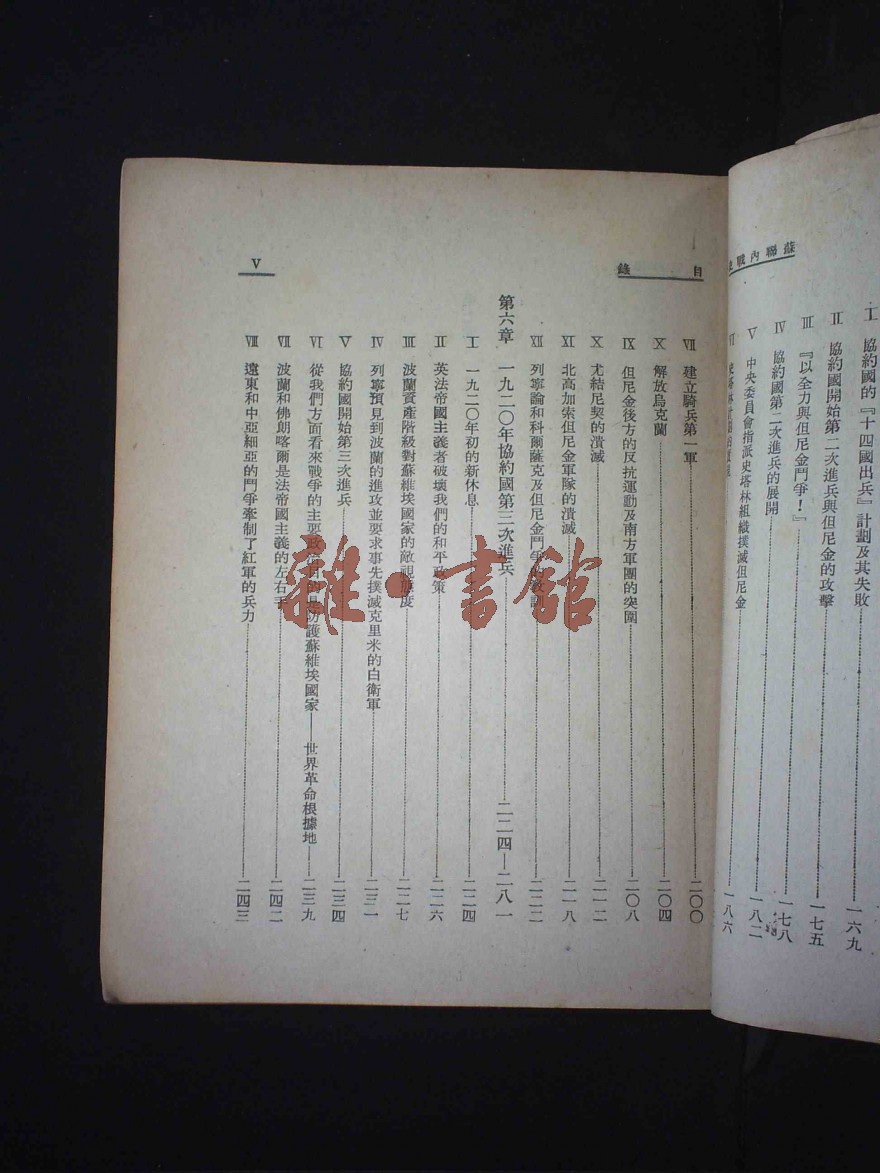 蘇聯內戰史
I 協約國的『十四國出兵』計劃及其失敗 一六九
II 協約國開始第二次進兵與但尼金的攻擊 一七五
III 『以全力與但尼金鬥爭！』
IV 協約國第二次進兵的展開 一七八
V 中央委員會指派史塔林組織撲滅但尼金 一八二
VI 一八六
目錄
VII 建立騎兵第一軍 二〇〇
X 解放烏克蘭 二〇四
IX 但尼金後方的反抗運動及南方軍團的突圍 二〇八
X 尤結尼契的潰滅 二一二
XI 北高加索但尼金軍隊的潰滅 二一八
XII 列寧論和科爾薩克及但尼金鬥爭的教訓 二二二
第六章 一九二〇年協約國第三次進兵 二二四—二八一
I 一九二〇年初的新休息 二二四
II 英法帝國主義者破壞我們的和平政策 二二六
III 波蘭資產階級對蘇維埃國家的敵視態度 二二七
IV 列寧預見到波蘭的進攻並要求事先撲滅克里米的白衛軍 二三一
V 協約國開始第三次進兵 二三四
VI 從我們方面看來戰爭的主要政治目的是防護蘇維埃國家——世界革命根據地 二三九
VII 波蘭和佛朗喀爾是法帝國主義的左右手 二四二
VIII 遠東和中亞細亞的鬥爭牽制了紅軍的兵力 二四三
V
雜·書館